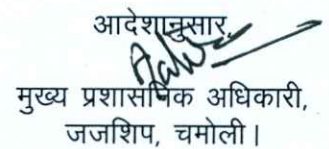 आदेशानुसार,
मुख्य प्रशासनिक अधिकारी,
जजशिप, चमोली।